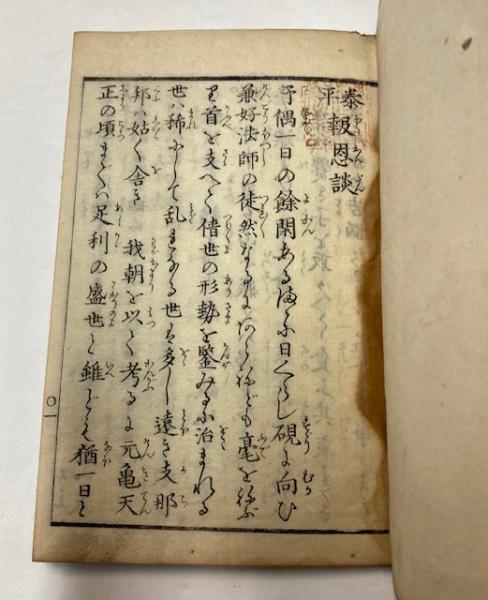 泰平報恩談
予偶一日の餘閑あるまゝに日くらし硯に向ひ
兼好法師の徒然なるにハあらねども毫を採
首を支へて倩世の形勢を鑒みるに治まれる
世ハ稀にして乱れたる世ハ多し遠き支那
邦ハ姑く舎き我朝を以て考るに元亀天
正の頃までハ足利の盛世と雖ども猶一日も